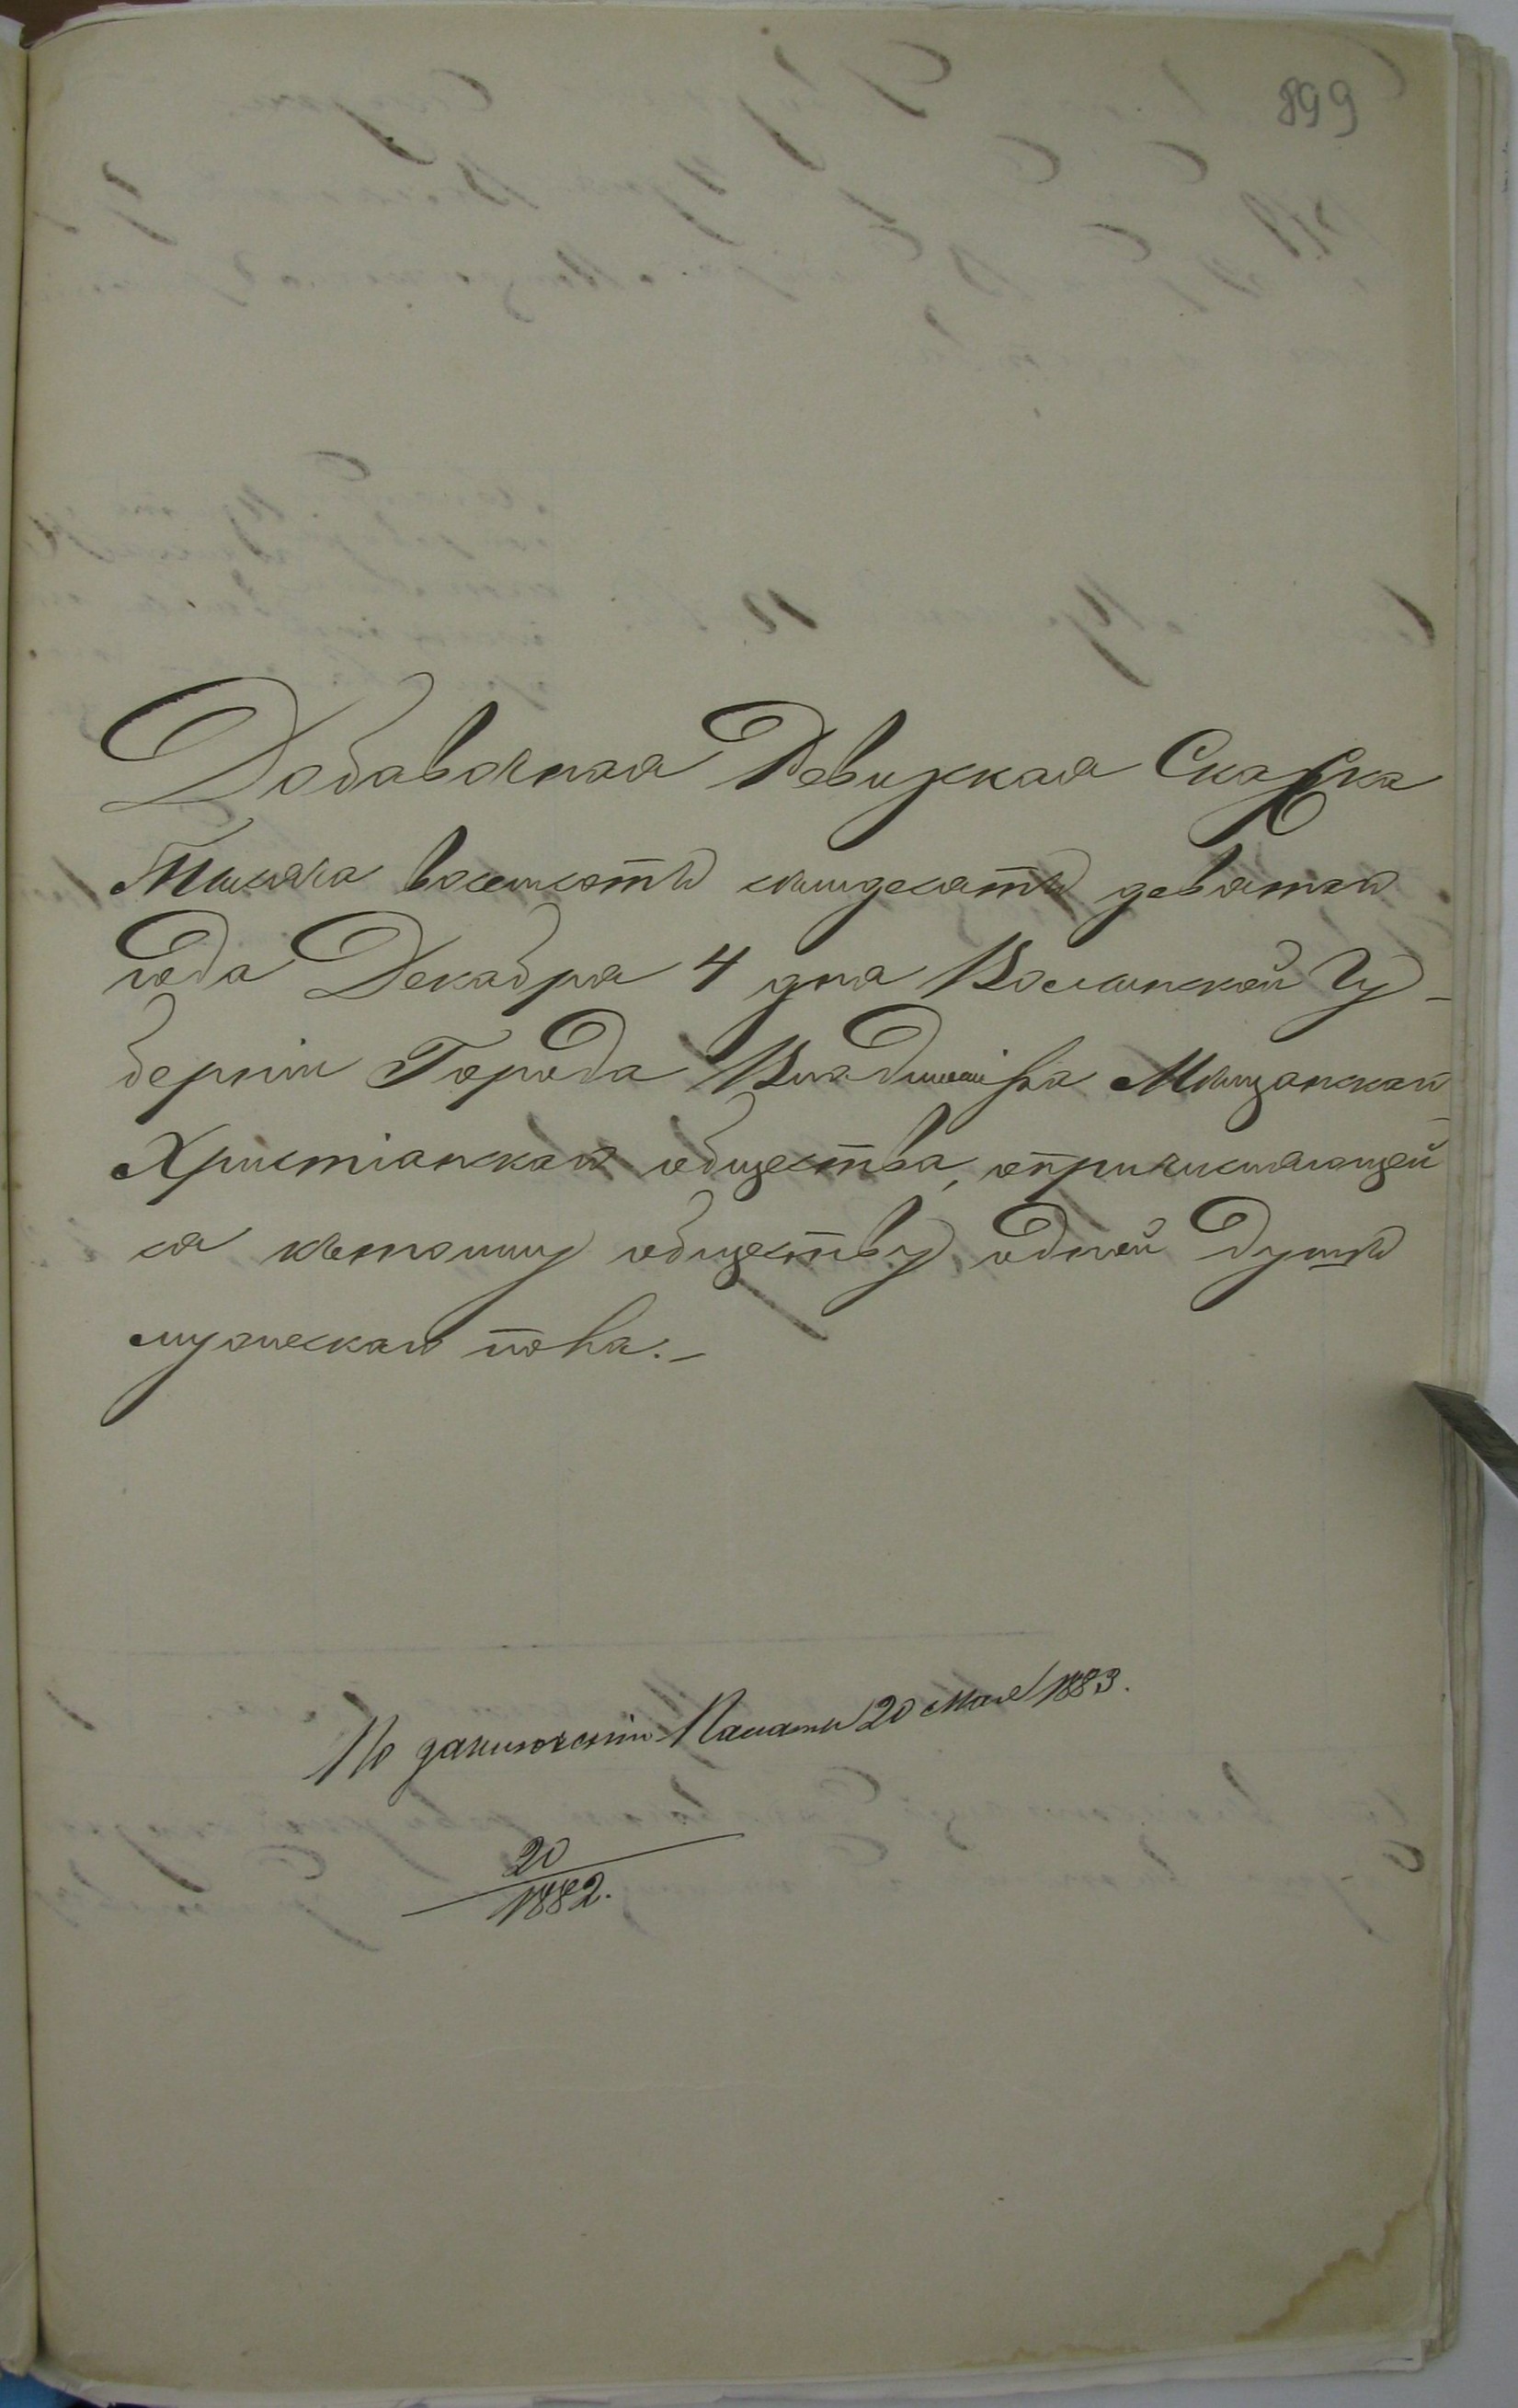 899
Добавочная Ревизкая Сказка
Тысяча восемсотъ семдесятъ девятаго
года Декабря 4 дня Волынской Гу-
берніи Города Владиміра Мѣщанскаго
Христіанскаго общества, опричисляющей
ся къ тому обществу одной душѣ
мужескаго пола.-
По заключенію Палаты 20 Мая 1883.
20
1882.